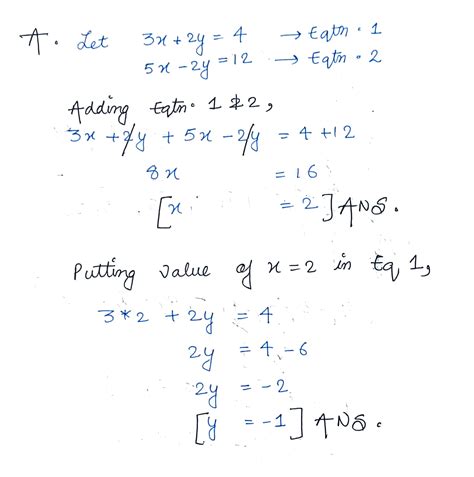 A. Let 3x + 2y = 4 → Eqtn. 1
5x - 2y = 12 → Eqtn. 2
Adding Eqtn. 1 & 2,
3x + 2y + 5x - 2y = 4 + 12
8x = 16
[x = 2] ANS.
Putting value of x = 2 in Eq 1,
3*2 + 2y = 4
2y = 4 - 6
2y = -2
[y = -1] ANS.